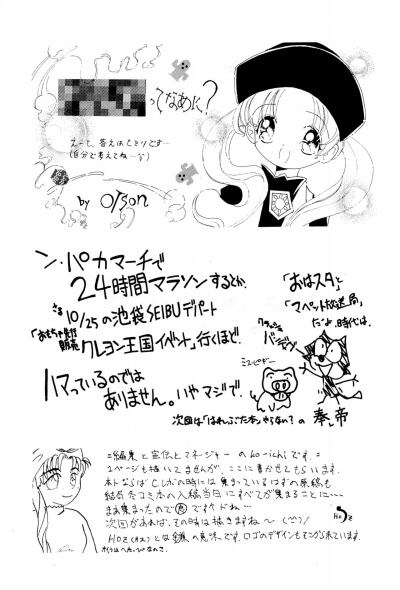 ってなあに?
えーと、答えはひとりです…
(自分で考えてね…
by Olson
ン・パカマーチで
24時間マラソンするとか、
さる10/25の池袋SEIBUデパート
「おもちゃ先行販売
クレヨン王国イベント」行くほど、
ハマっているのでは
ありません。いやマジで。
「おはスタ」と
「マペット放送局」
だよ、時代は。
ミスピギー
次回は「はれぶた本」やらない?の
奉帝
=編集と宣伝とマネジャーのko-ichiです.=
1ページも描いてませんが、ここに書かせてもらいます。
本トならばCしかの時には集まっているはずの原稿も
結局、冬コミ本の入稿当日にすべてが集まることに~~~
まぁ集まったので㊝ですケドね…
次回があれば、その時は描きますね~
Hoz
の意味です。ロゴのデザインも